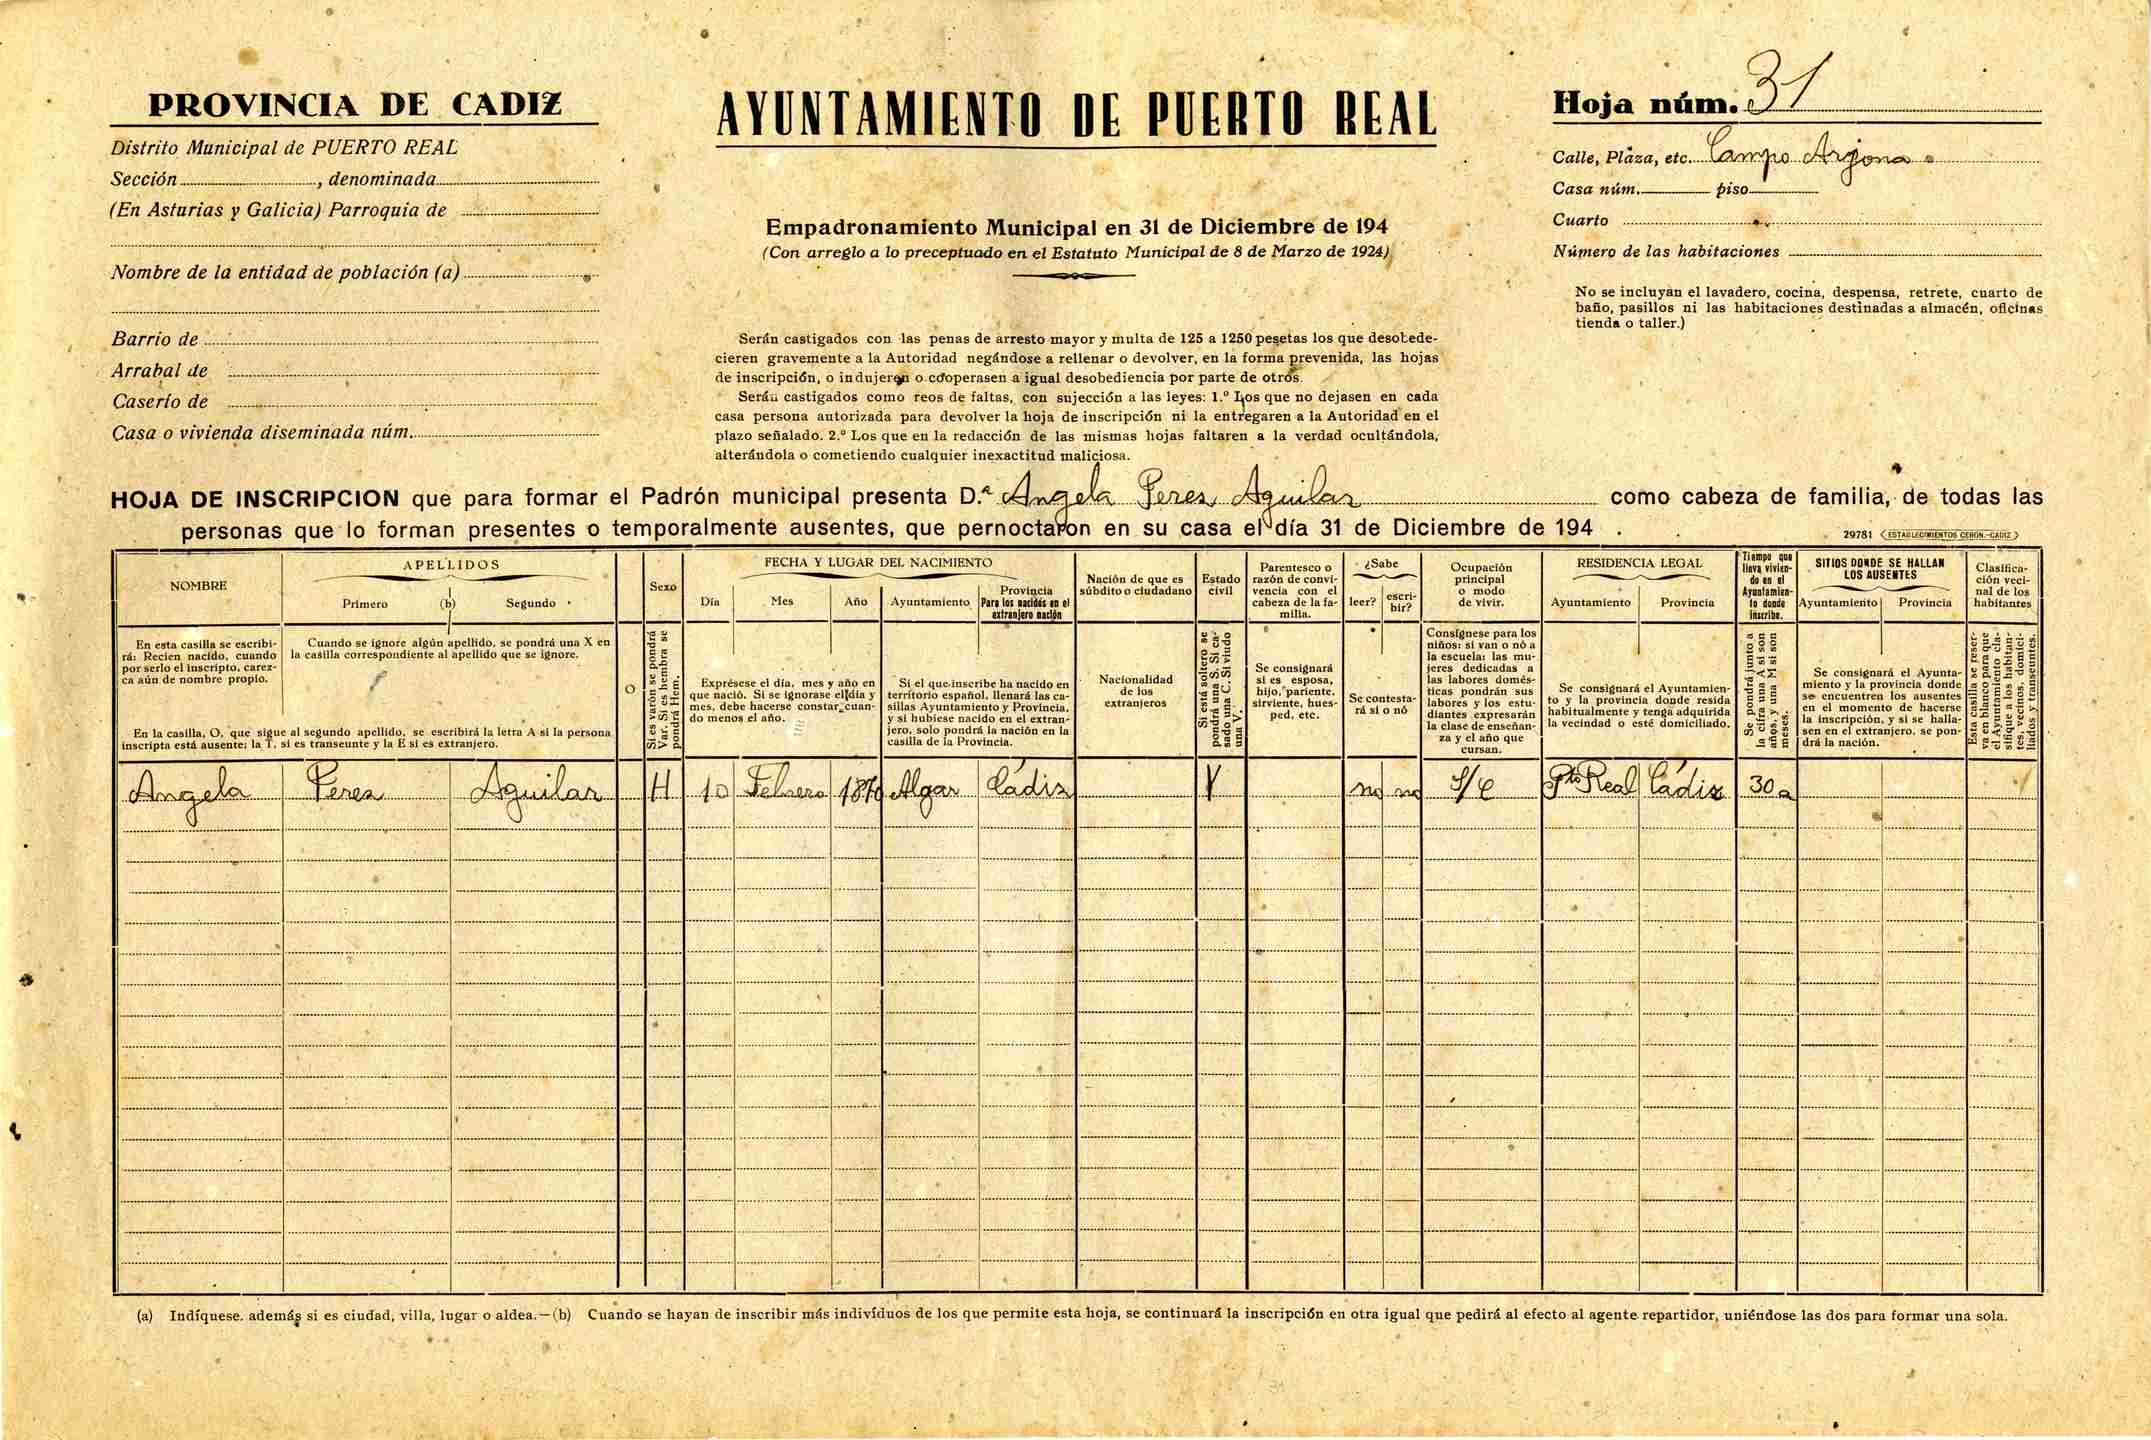 PROVINCIA DE CADIZ
Distrito Municipal de PUERTO REAL
Sección , denominada
(En Asturias y Galicia) Parroquia de
Nombre de la entidad de población (a)
Barrio de
Arrabal de
Caserío de
Casa o vivienda diseminada núm.
AYUNTAMIENTO DE PUERTO REAL
Empadronamiento Municipal en 31 de Diciembre de 194
(Con arreglo a lo preceptuado en el Estatuto Municipal de 8 de Marzo de 1924)
Serán castigados con las penas de arresto mayor y multa de 125 a 1250 pesetas los que desobede-
cieren gravemente a la Autoridad negándose a rellenar o devolver, en la forma prevenida, las hojas
de inscripción, o indujeren o cooperasen a igual desobediencia por parte de otros.
Serán castigados como reos de faltas, con sujección a las leyes: 1.º Los que no dejasen en cada
casa persona autorizada para devolver la hoja de inscripción ni la entregaren a la Autoridad en el
plazo señalado. 2.º Los que en la redacción de las mismas hojas faltaren a la verdad ocultándola,
alterándola o cometiendo cualquier inexactitud maliciosa.
Hoja núm. 31
Calle, Plaza, etc. Campo Arjona
Casa núm. piso
Cuarto
Número de las habitaciones
No se incluyan el lavadero, cocina, despensa, retrete, cuarto de
baño, pasillos ni las habitaciones destinadas a almacén, oficinas
tienda o taller.)
HOJA DE INSCRIPCION que para formar el Padrón municipal presenta D.ª Angela Perez Aguilar como cabeza de familia, de todas las
personas que lo forman presentes o temporalmente ausentes, que pernoctaron en su casa el día 31 de Diciembre de 194 .
29781 ESTABLECIMIENTOS CERON.-CADIZ
NOMBRE
En esta casilla se escribi-
rá: Recien nacido, cuando
por serlo el inscripto, carez-
ca aún de nombre propio.
APELLIDOS
Primero (b) Segundo
Cuando se ignore algún apellido, se pondrá una X en
la casilla correspondiente al apellido que se ignore.
En la casilla, O, que sigue al segundo apellido, se escribirá la letra A si la persona
inscripta está ausente; la T, si es transeunte y la E si es extranjero.
O
Sexo
Si es varón se pondrá
Var. Si es hembra se
pondrá Hem.
FECHA Y LUGAR DEL NACIMIENTO
Día Mes Año Ayuntamiento
Provincia
Para los nacidos en el
extranjero nación
Exprésese el día, mes y año en
que nació. Si se ignorase el día y
mes, debe hacerse constar cuan-
do menos el año.
Si el que inscribe ha nacido en
territorio español, llenará las ca-
sillas Ayuntamiento y Provincia,
y si hubiese nacido en el extran-
jero, solo pondrá la nación en la
casilla de la Provincia.
Nación de que es
súbdito o ciudadano
Nacionalidad
de los
extranjeros
Estado
civil
Si está soltero se
pondrá una S. Si ca-
sado una C. Si viudo
una V.
Parentesco o
razón de convi-
vencia con el
cabeza de la fa-
milia.
Se consignará
si es esposa,
hijo, pariente,
sirviente, hues-
ped, etc.
¿Sabe
leer? escri-
bir?
Se contesta-
rá si o nó
Ocupación
principal
o modo
de vivir.
Consígnese para los
niños: si van o nó a
la escuela: las mu-
jeres dedicadas a
las labores domés-
ticas pondrán sus
labores y los estu-
diantes expresarán
la clase de enseñan-
za y el año que
cursan.
RESIDENCIA LEGAL
Ayuntamiento Provincia
Se consignará el Ayuntamien-
to y la provincia donde resida
habitualmente y tenga adquirida
la vecindad o esté domiciliado.
Tiempo que
lleva vivien-
do en el
Ayuntamien-
to donde
inscribe.
Se pondrá junto a
la cifra una A si son
años, y una M si son
meses.
SITIOS DONDE SE HALLAN
LOS AUSENTES
Ayuntamiento Provincia
Se consignará el Ayunta-
miento y la provincia donde
se encuentren los ausentes
en el momento de hacerse
la inscripción, y si se halla-
sen en el extranjero, se pon-
drá la nación.
Clasifica-
ción veci-
nal de los
habitantes
Esta casilla se reser-
va en blanco para que
el Ayuntamiento cla-
sifique a los habitan-
tes, vecinos, domici-
liados y transeuntes.
Angela Perez Aguilar H 10 Febrero Algar Cádiz V no no S/C Pto Real Cádiz 30 a
(a) Indíquese. además si es ciudad, villa, lugar o aldea.—(b) Cuando se hayan de inscribir más individuos de los que permite esta hoja, se continuará la inscripción en otra igual que pedirá al efecto al agente repartidor, uniéndose las dos para formar una sola.